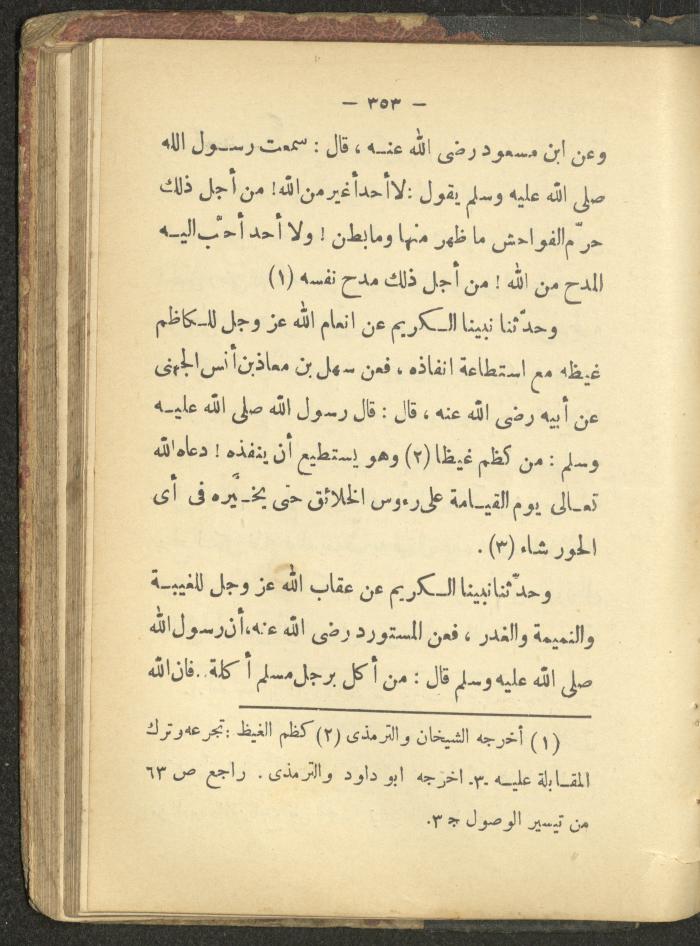 — ٣٥٣ —
وعن ابن مسعود رضى الله عنـه ، قال : سمعت رسـول الله
صلى الله عليه وسلم يقول : لا أحد أغير من الله ! من أجل ذلك
حرّم الفواحش ما ظهر منها وما بطن ! ولا أحد أحبّ اليـه
المدح من الله ! من أجل ذلك مدح نفسه (١)
وحدّثنا نبينا الـكريم عن انعام الله عز وجل للـكاظم
غيظه مع استطاعة انفاذه ، فعن سهل بن معاذ بن أنس الجهنى
عن أبيه رضى الله عنه ، قال : قال رسول الله صلى الله عليـه
وسلم : من كظم غيظا (٢) وهو يستطيع أن ينفذه ! دعاه الله
تعـالى يوم القيـامة على رءوس الخلائق حتى يخـيّره فى أى
الحور شاء (٣) .
وحدّثنا نبينا الـكريم عن عقاب الله عز وجل للغيبـة
والنميمة والغدر ، فعن المستورد رضى الله عنه، أن رسول الله
صلى الله عليه وسلم قال : من أكل برجل مسلم أكلة.. فان الله
(١) أخرجه الشيخان والترمذى (٢) كظم الغيظ : تجرعه وترك
المقـابلة عليـه .٣. اخرجه ابو داود والترمذى . راجع ص ٦٣
من تيسير الوصول ج ٣.